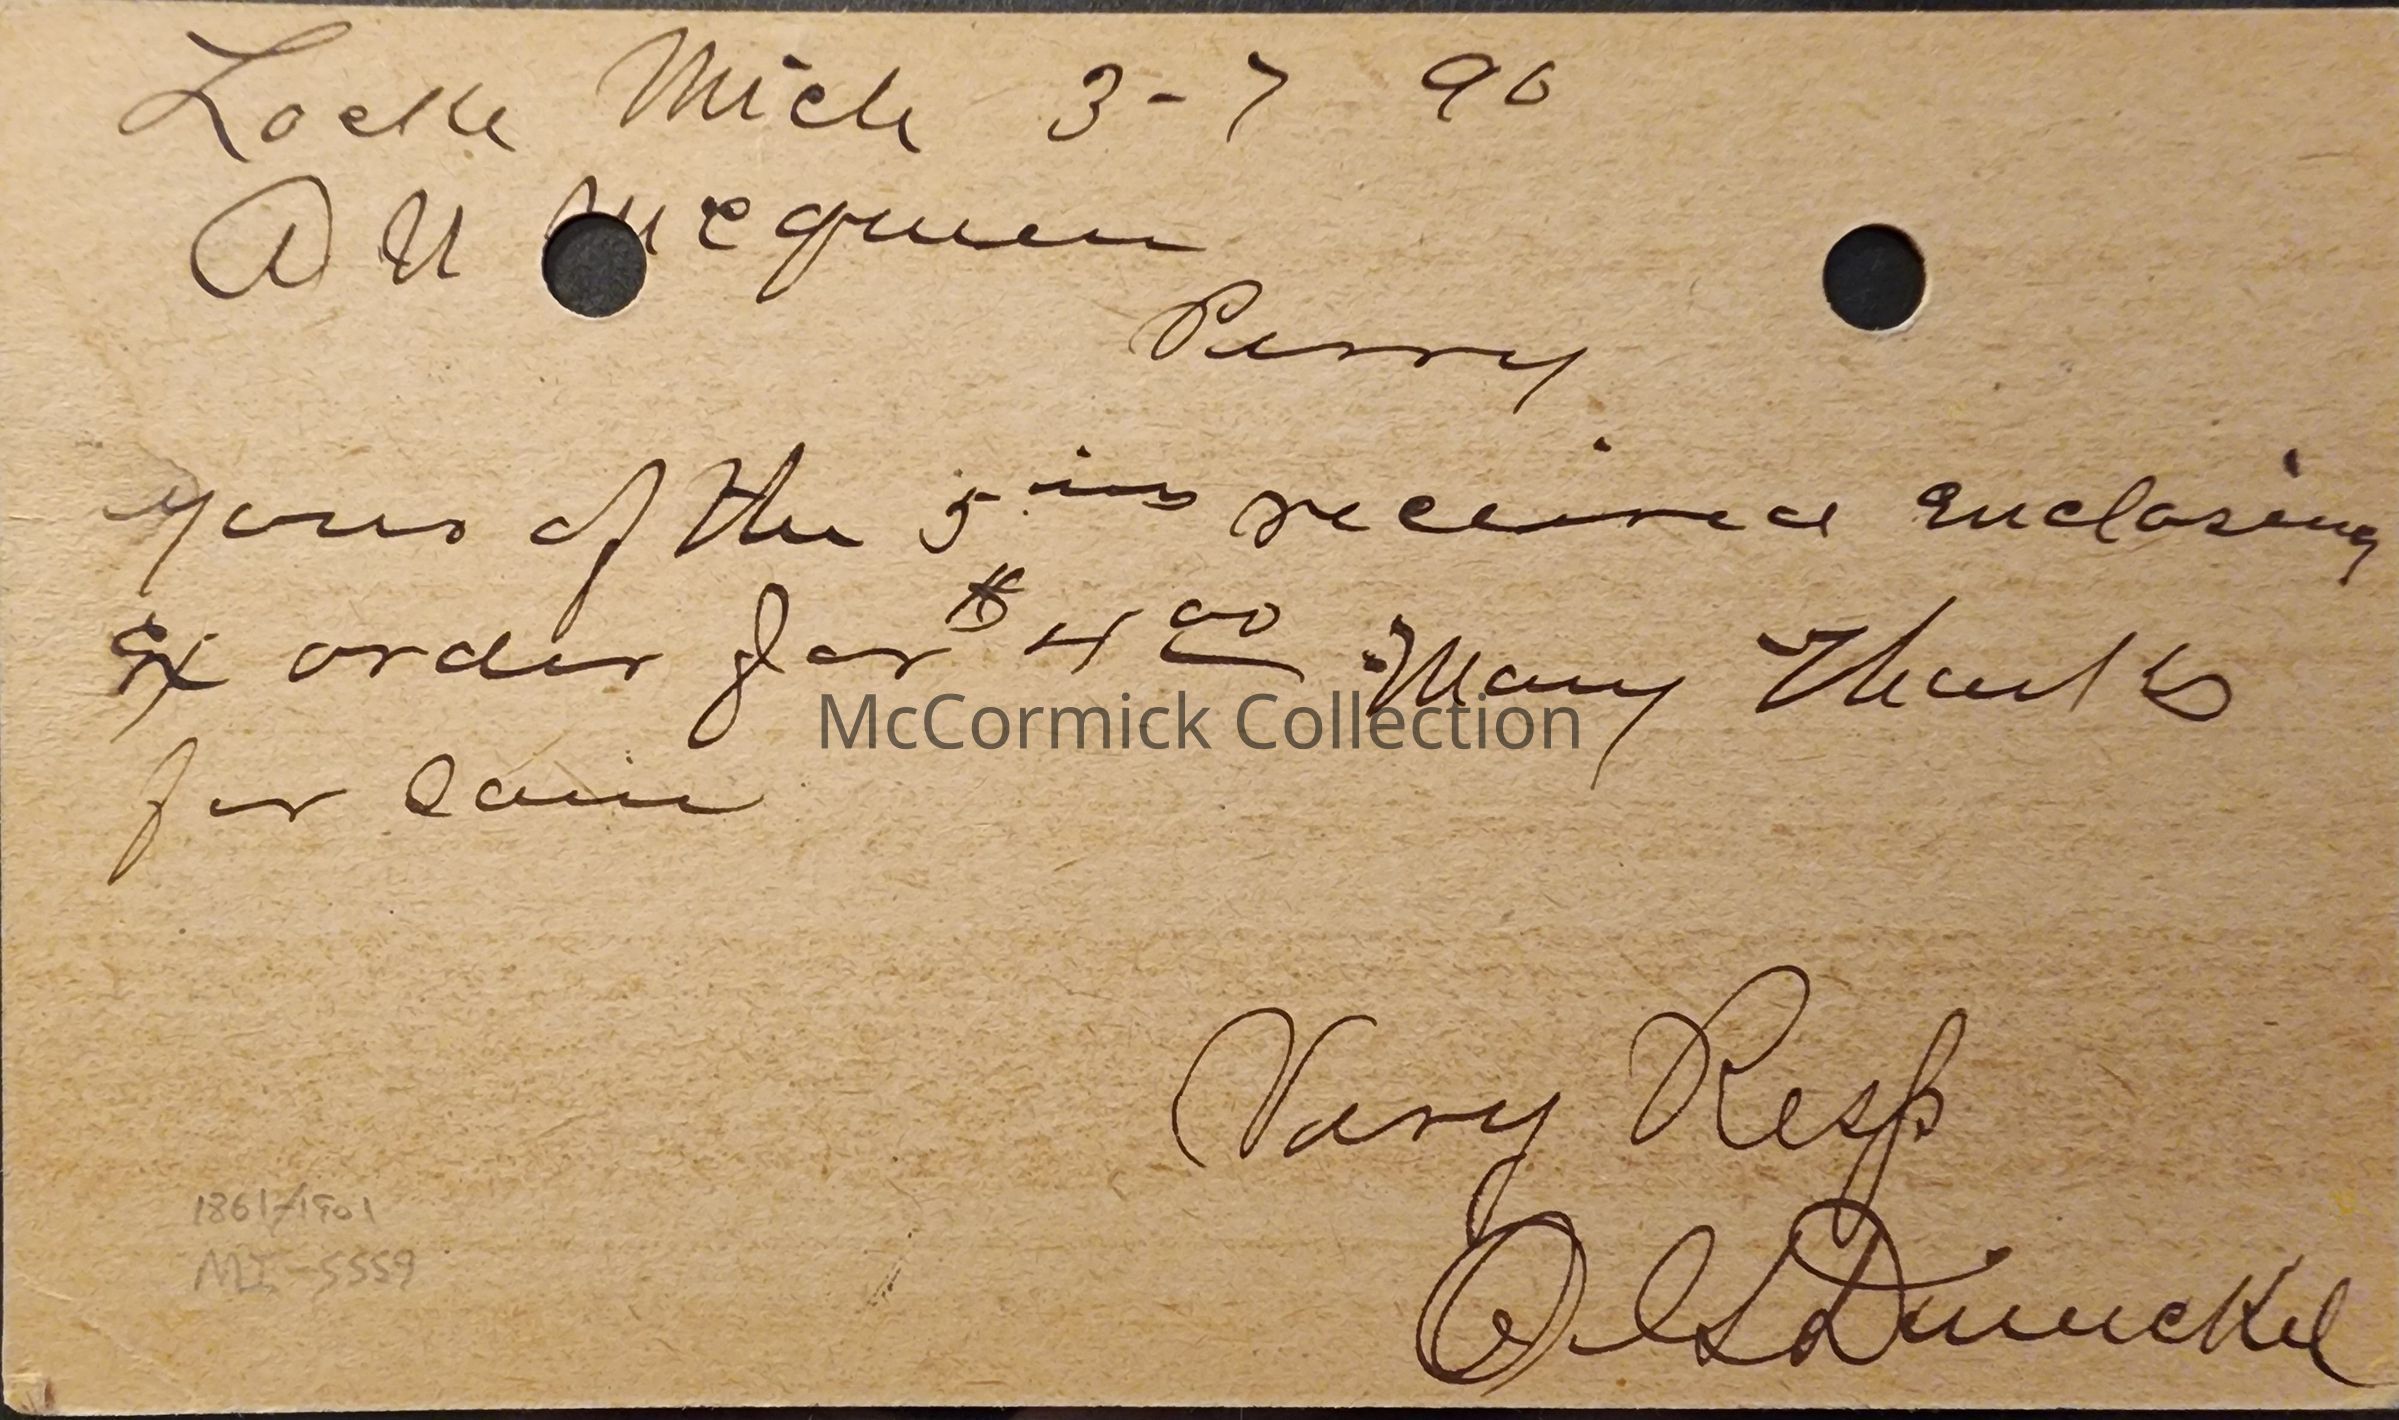 Locke Mich 3-7 90
A N McQueen
Perry
Yours of the 5 ins received enclosing
Ex order for $4 00 Many Thanks
for Same
Very Resp
O L S Dunckel
McCormick Collection
1861-1901
MI-5559